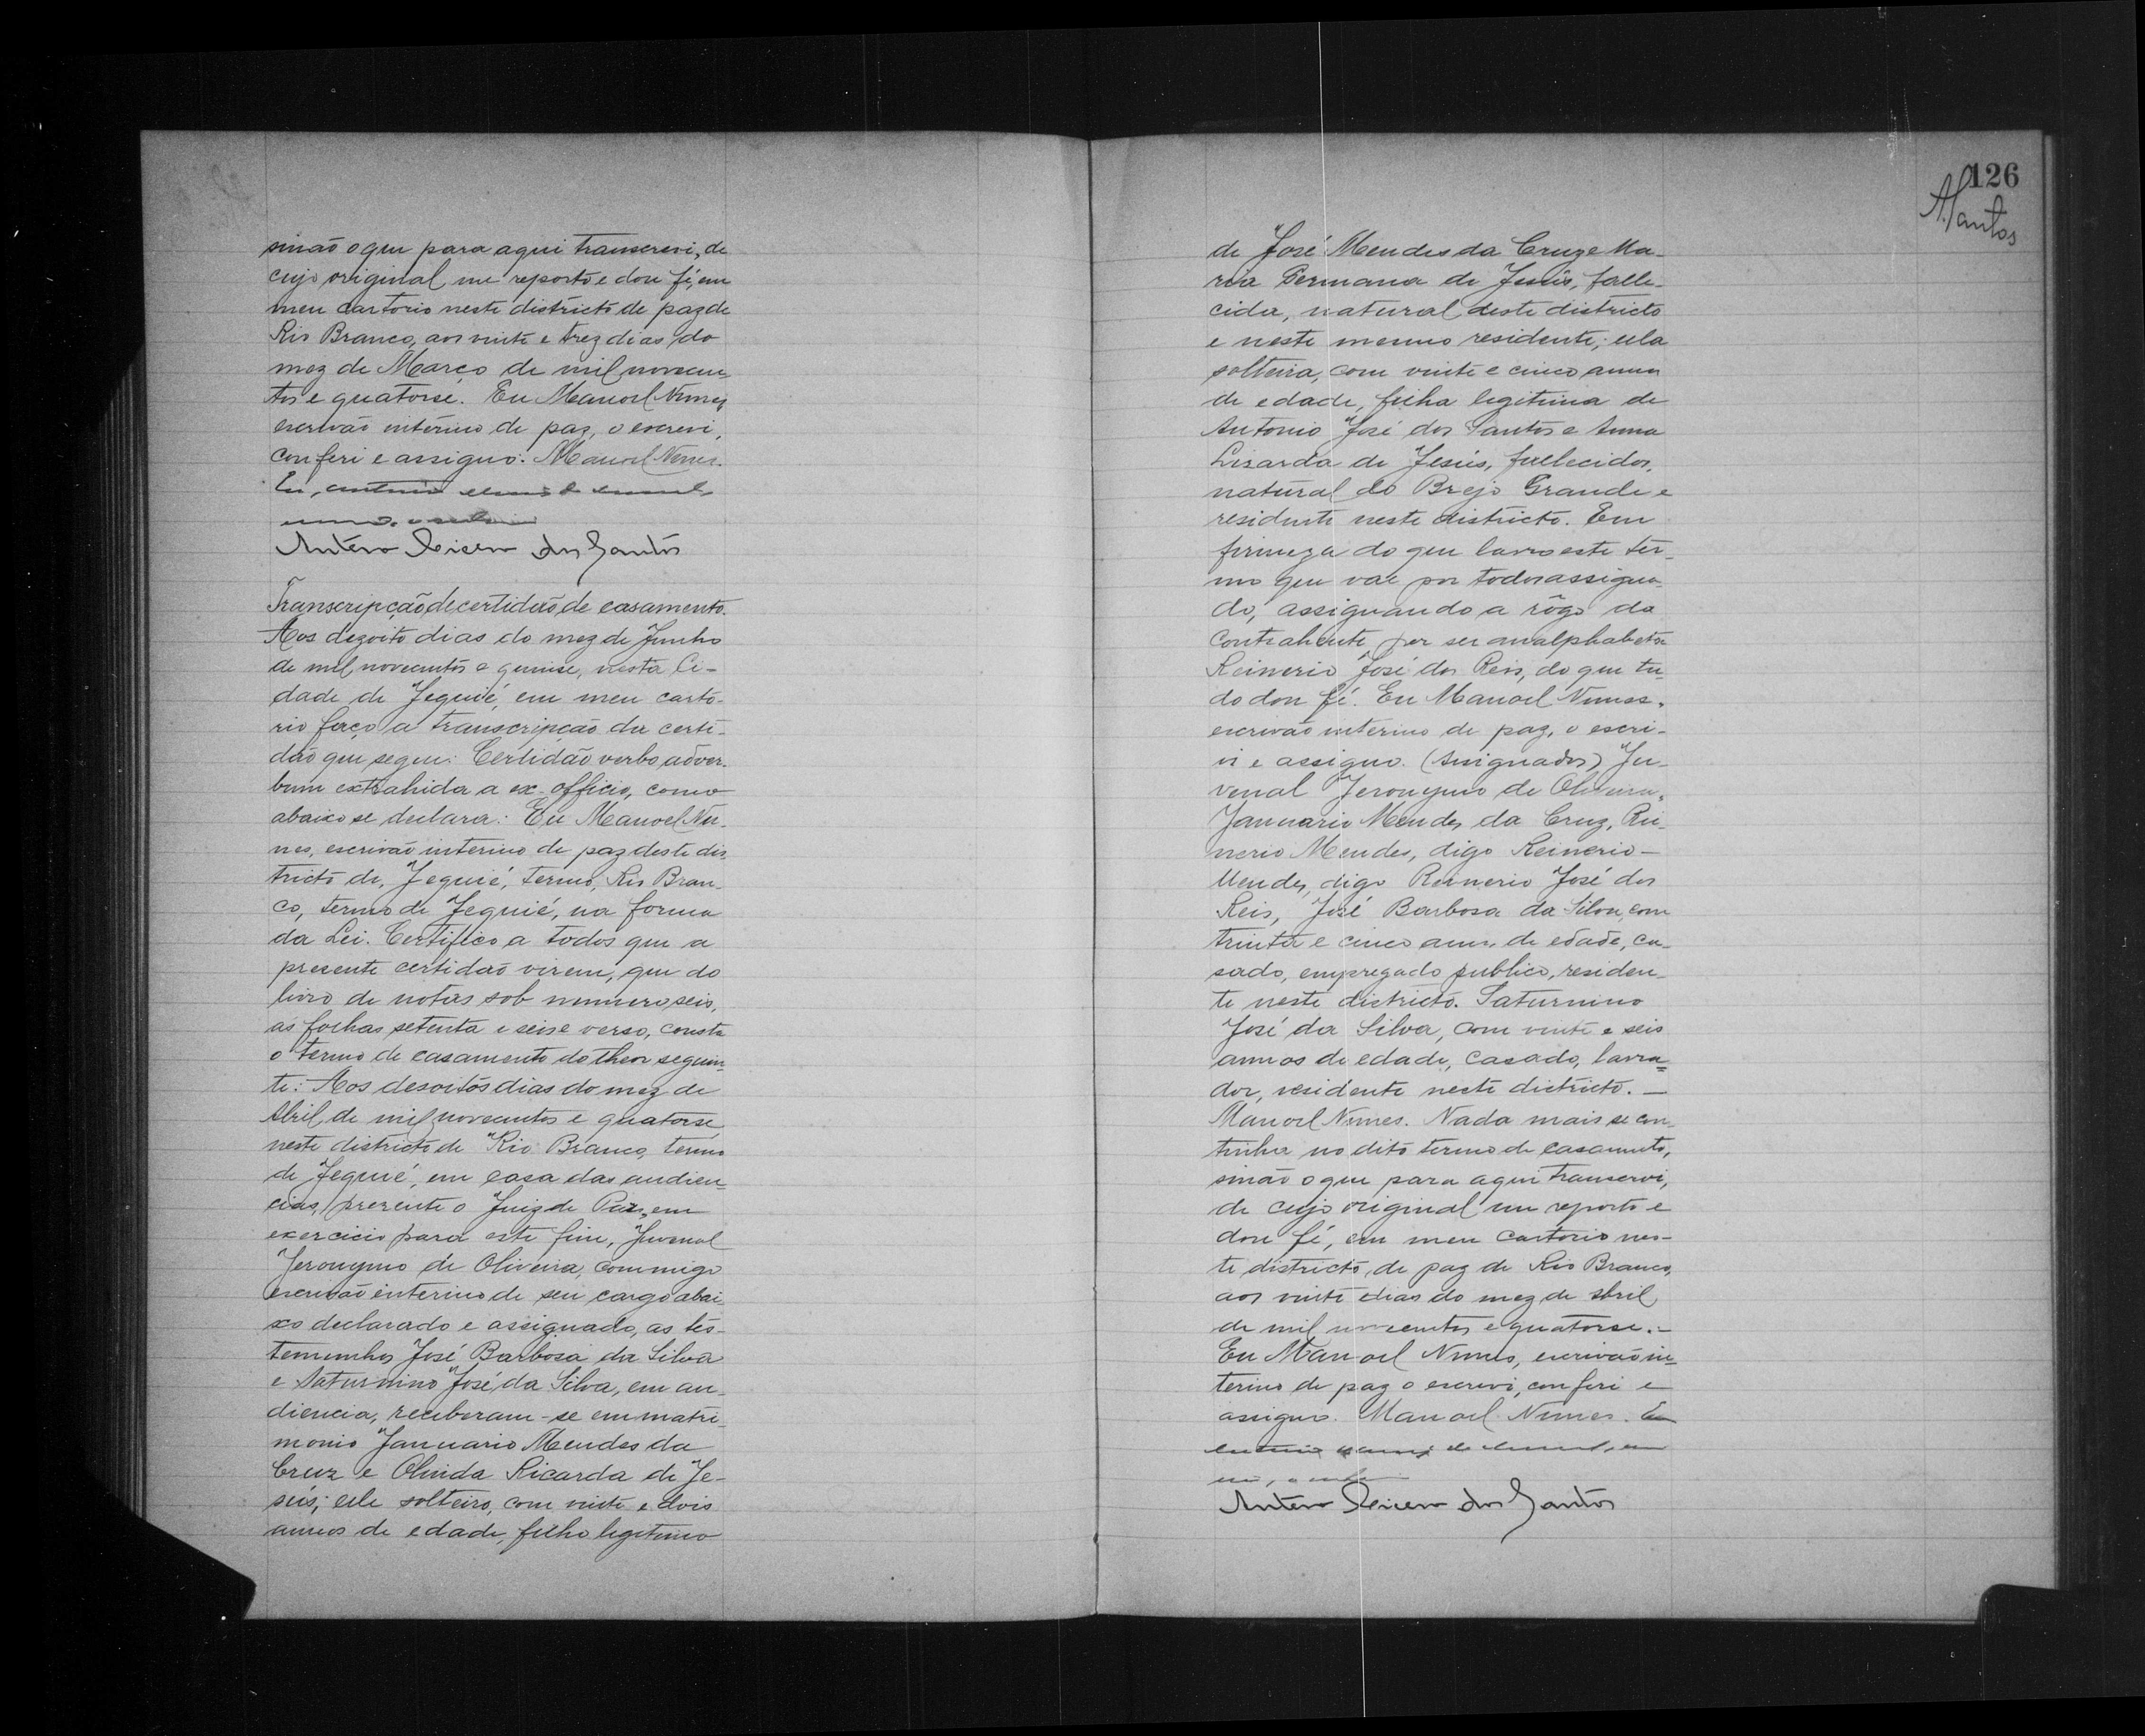 sinão o que para aqui transcrevi, de
cujo original me reporto e dou fé, em
meu cartorio neste districto de paz de
Rio Branco, aos vinte e trez dias do
mez de Março de mil novecen-
tos e quatorse. Eu Manoel Nunes,
escrivão interino de paz, o escrevi,
conferi e assigno. Manoel Nunes.
Eu,
Antéro Cicero dos Santos
Transcripção de certidão de casamento.
Aos dezoito dias do mez de Junho
de mil novecentos e quinse, nesta Ci-
dade de Jequié, em meu carto-
rio faço a transcripção da certi-
dão que segue: Certidão verbo ad ver-
bum extrahida a ex-officio, como
abaixo se declara: Eu Manoel Nu-
nes, escrivão interino de paz deste dis
tricto de, Jequié, termo, Rio Bran-
co, termo de Jequié, na forma
da Lei. Certifico a todos que a
presente certidão virem, que do
livro de notas sob numero seis,
ás folhas setenta e seis e verso, consta
o termo de casamento do theor seguin-
te: Aos desoitos dias do mez de
Abril de mil novecentos e quatorse,
neste districto de Rio Branco, termo
de Jequié, em casa das audien-
cias, presente o Juiz de Paz, em
exercicio para este fim, Juvenal
Jeronymo de Oliveira, commigo
escrivão interino de seu cargo abai-
xo declarado e assignado, as tes-
temunhas José Barbosa da Silva
e Saturnino José da Silva, em au-
diencia, receberam-se em matri-
monio Januario Mendes da
Cruz e Olinda Ricarda de Je-
sús; elle solteiro, com vinte e dois
annos de edade, filho legitimo
126
ASantos
de José Mendes da Cruz e Ma-
ria Germana de Jesús, falle-
cida, natural deste districto
e neste mesmo residente; ella
solteira, com vinte e cinco annos
de edade, filha legitima de
Antonio José dos Santos e Anna
Lisarda de Jesús, fallecidos,
natural do Brejo Grande e
residente neste districto. Em
firmeza do que lavro este ter-
mo que vae por todos assigna-
do, assignando a rôgo da
contrahente, por ser analphabeta
Reinerio José dos Reis, do que tu-
do dou fé. Eu Manoel Nunes,
escrivão interino de paz, o escri-
vi e assigno. (Assignados) Ju-
venal Jeronymo de Oliveira,
Januario Mendes da Cruz, Rei-
nerio Mendes, digo Reinerio
Mendes, digo Reinerio José dos
Reis, José Barbosa da Silva, com
trinta e cinco annos de edade, ca-
sado, empregado publico, residen-
te neste districto. Saturnino
José da Silva, com vinte e seis
annos de edade, casado, lavra-
dor, residente neste districto. —
Manoel Nunes. Nada mais se con-
tinha no dito termo de casamento,
sinão o que para aqui transcrvi,
de cujo original me reporto e
dou fé, em meu cartorio nes-
te districto de paz de Rio Branco,
aos vinte dias do mez de Abril
de mil novecentos e quatorse.-
Eu Manoel Nunes, escrivão in-
terino de paz o escrevi, conferi e
assigno. Manoel Nunes. Eu
Antéro Cicero dos Santos